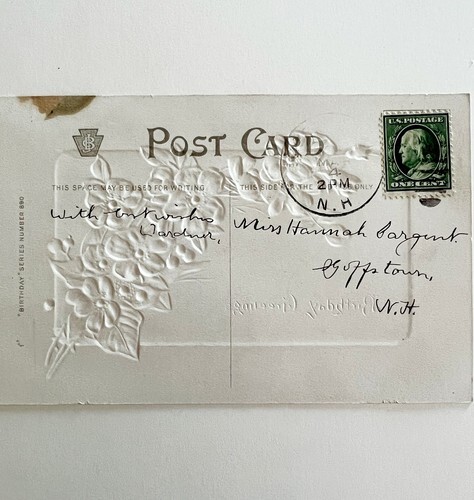 POST CARD
THIS SPACE MAY BE USED FOR WRITING.
THIS SIDE FOR THE ONLY
U.S. POSTAGE
ONE CENT
4
2 PM
N.H
With best wishes
Wardner,
Miss Hannah Sargent.
Goffstown,
N.H.
Birthday Greetings
"BIRTHDAY" SERIES NUMBER 890